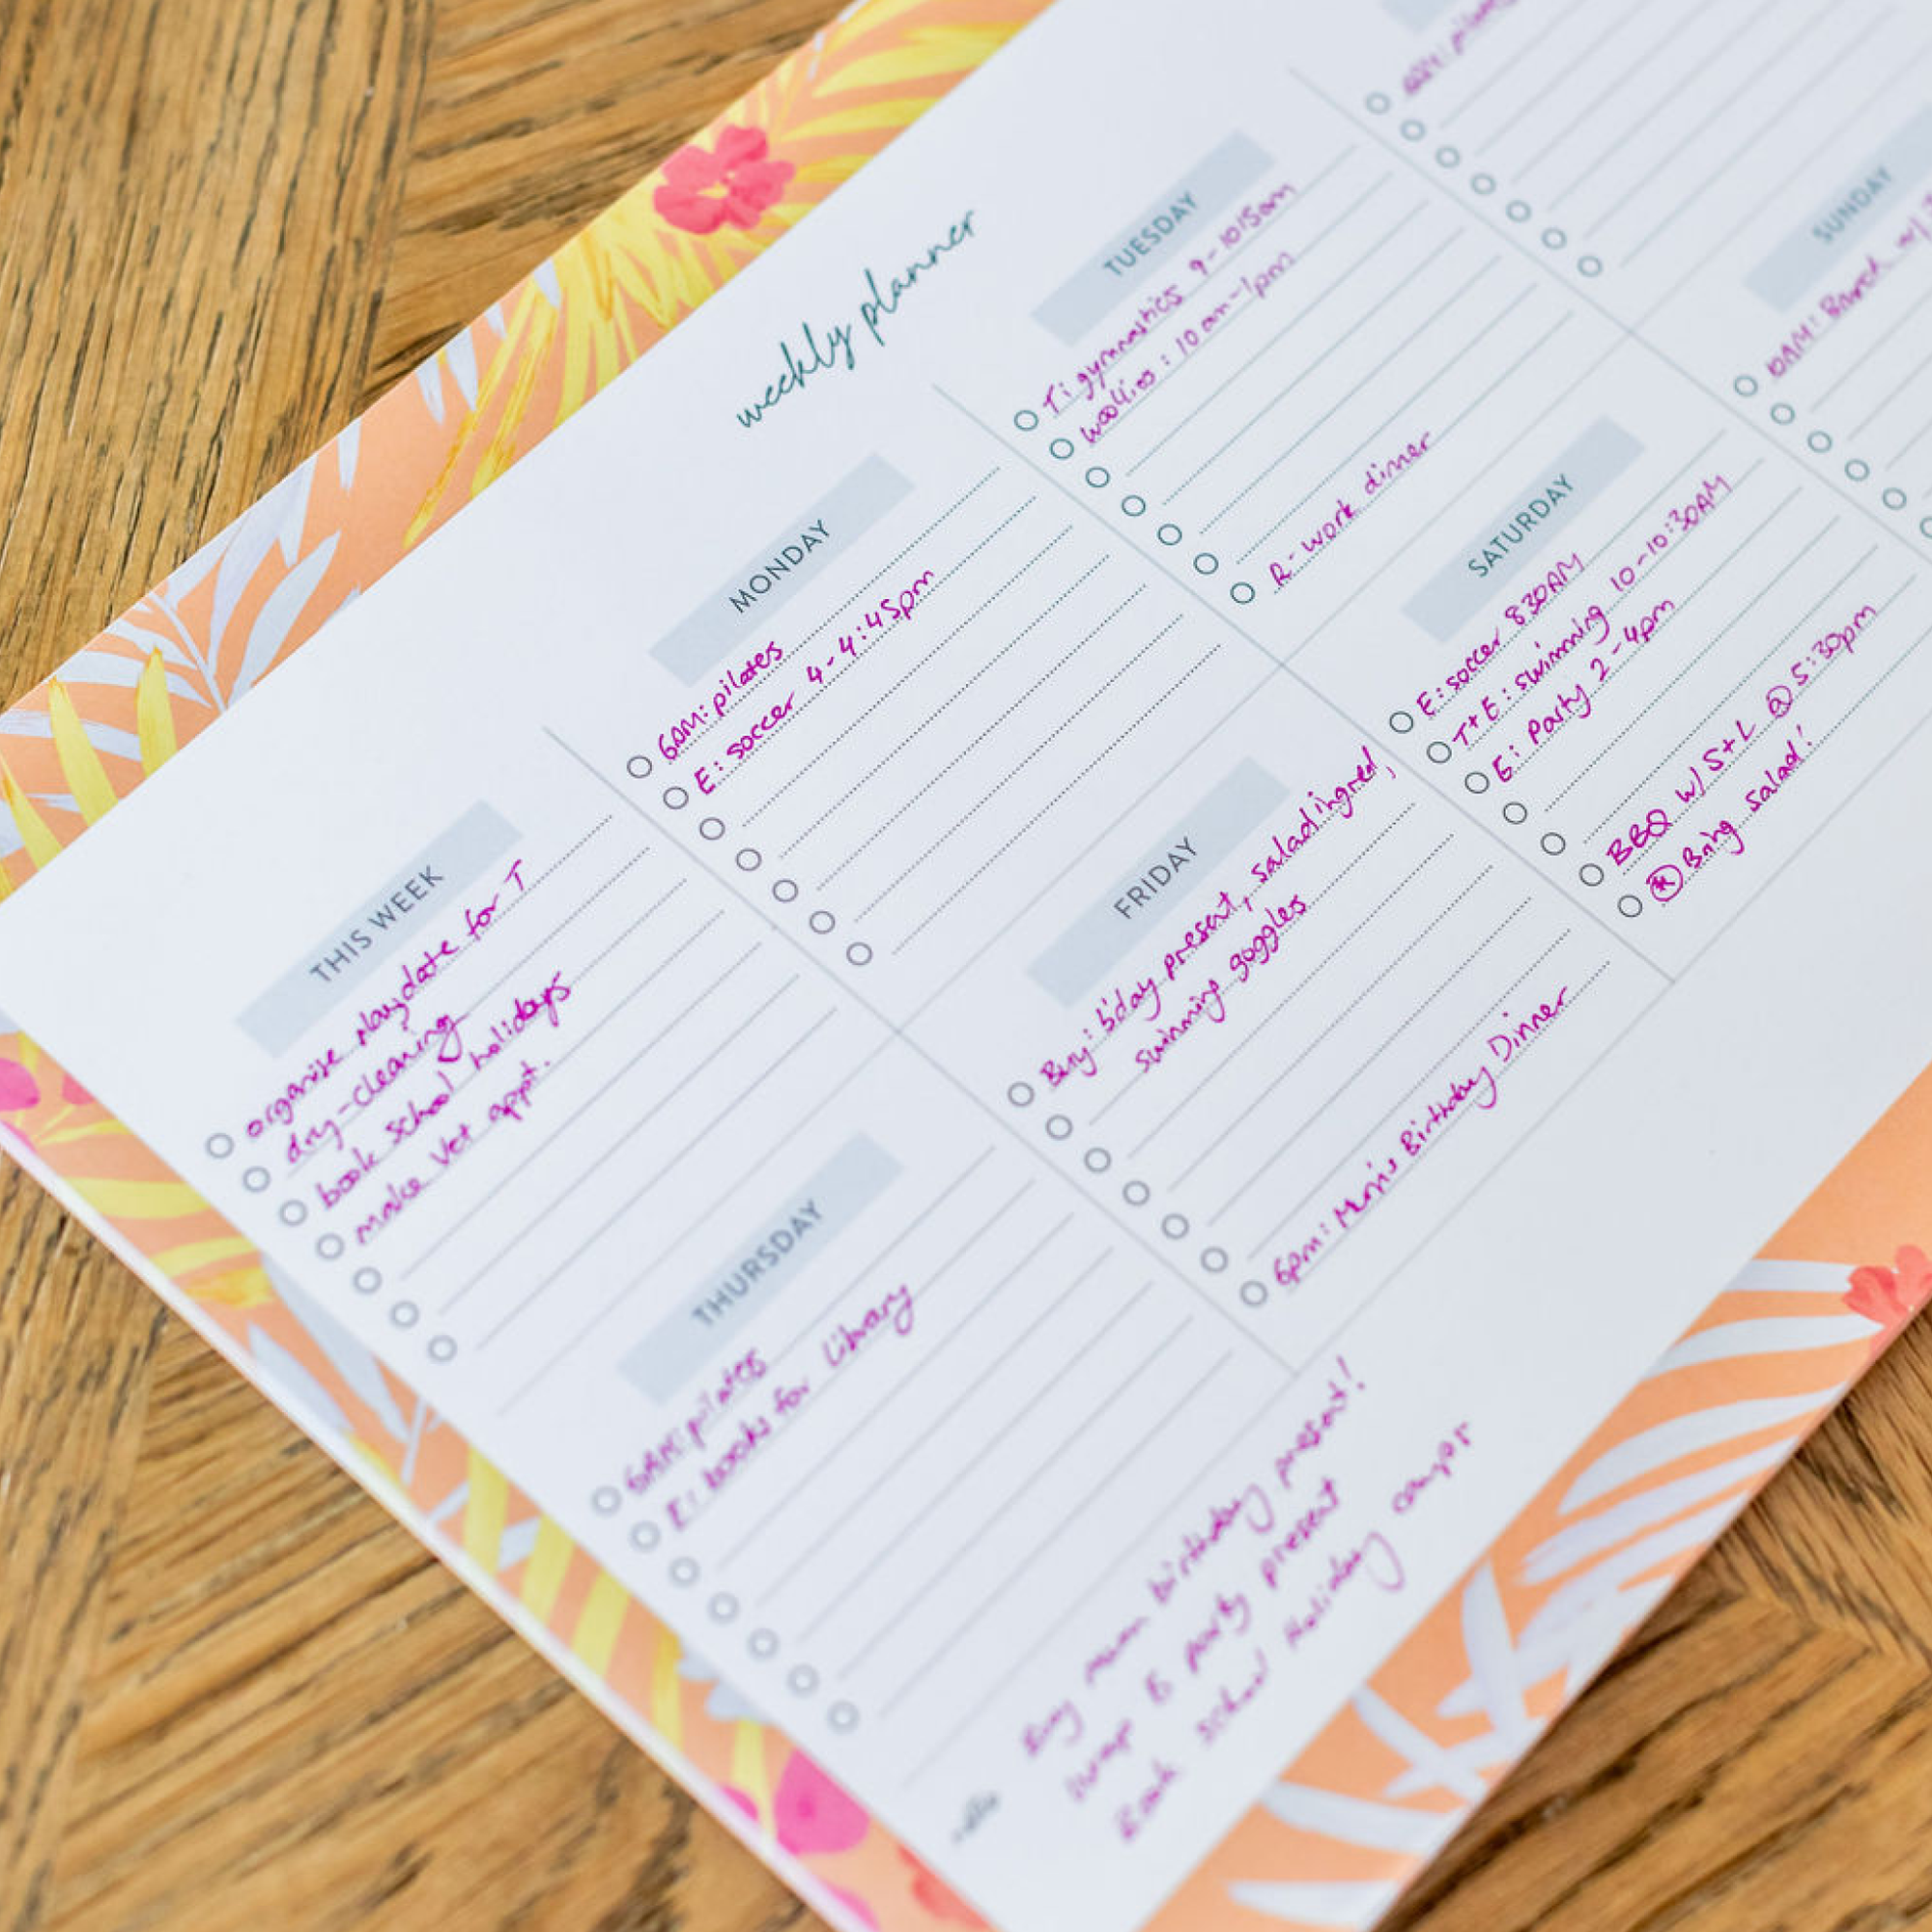 weekly planner
THIS WEEK
organise playdate for T
dry-cleaning
book school holidays
make vet appt.
MONDAY
6AM: pilates
E: soccer 4-4:45pm
TUESDAY
T: gymnastics 9-10:15am
10am-1pm
R- work dinner
pilates
THURSDAY
6AM: pilates
E: books for library
FRIDAY
Buy: b'day present, salad ingred,
swimming goggles
6pm: Mum's Birthday Dinner
SATURDAY
E: soccer 830AM
T+E: swimming 10-10:30AM
E: Party 2-4pm
BBQ w/ S+L @ 5:30pm
* Bring salad!
SUNDAY
10AM: Brunch w/
Buy mum birthday present!
Wrap E party present
Book school holiday camps